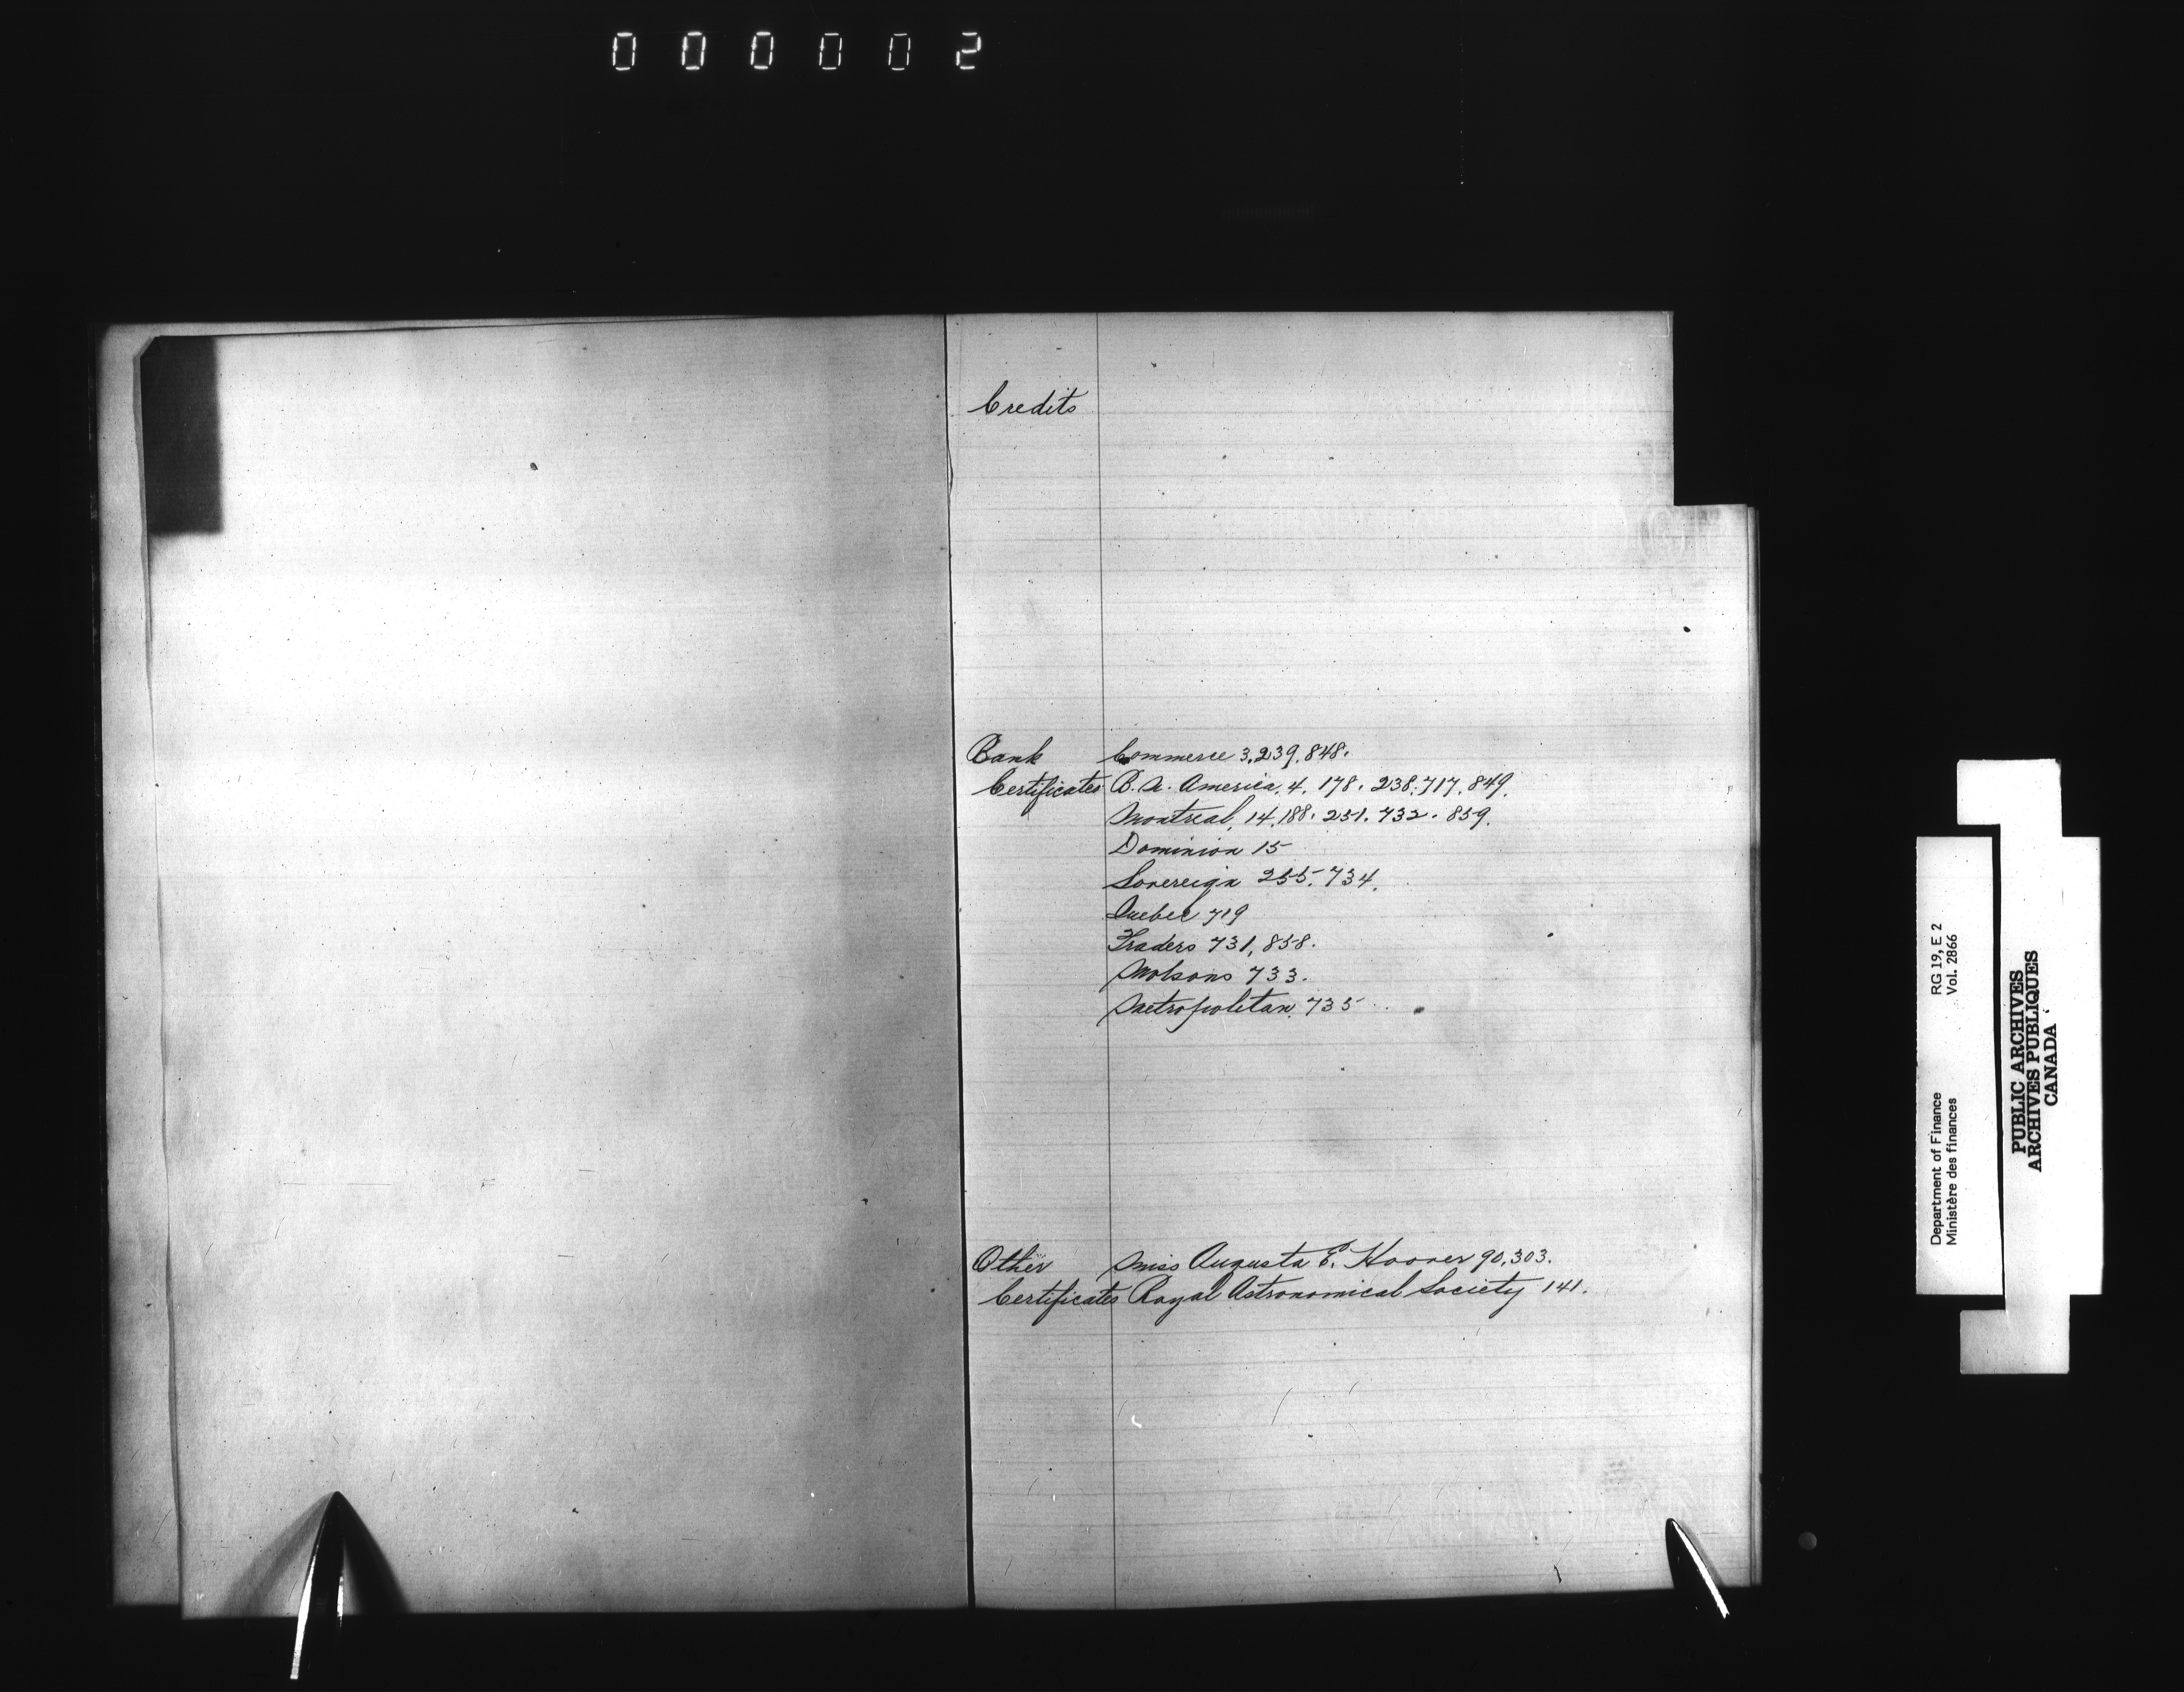 000002
Credits
Bank Commerce 3,239,848.
Certificates B. N. America, 4, 178. 238. 717, 849.
Montreal, 14, 188. 251. 732. 859.
Dominion 15
Sovereign 255. 734.
Quebec 719
Traders 731, 858.
Molsons 733.
Metropolitan, 735
Other Miss Augusta E. Hoover 90,303.
Certificates Royal Astronomical Society 141.
Department of Finance RG 19, E 2
Ministère des finances Vol. 2866
PUBLIC ARCHIVES
ARCHIVES PUBLIQUES
CANADA